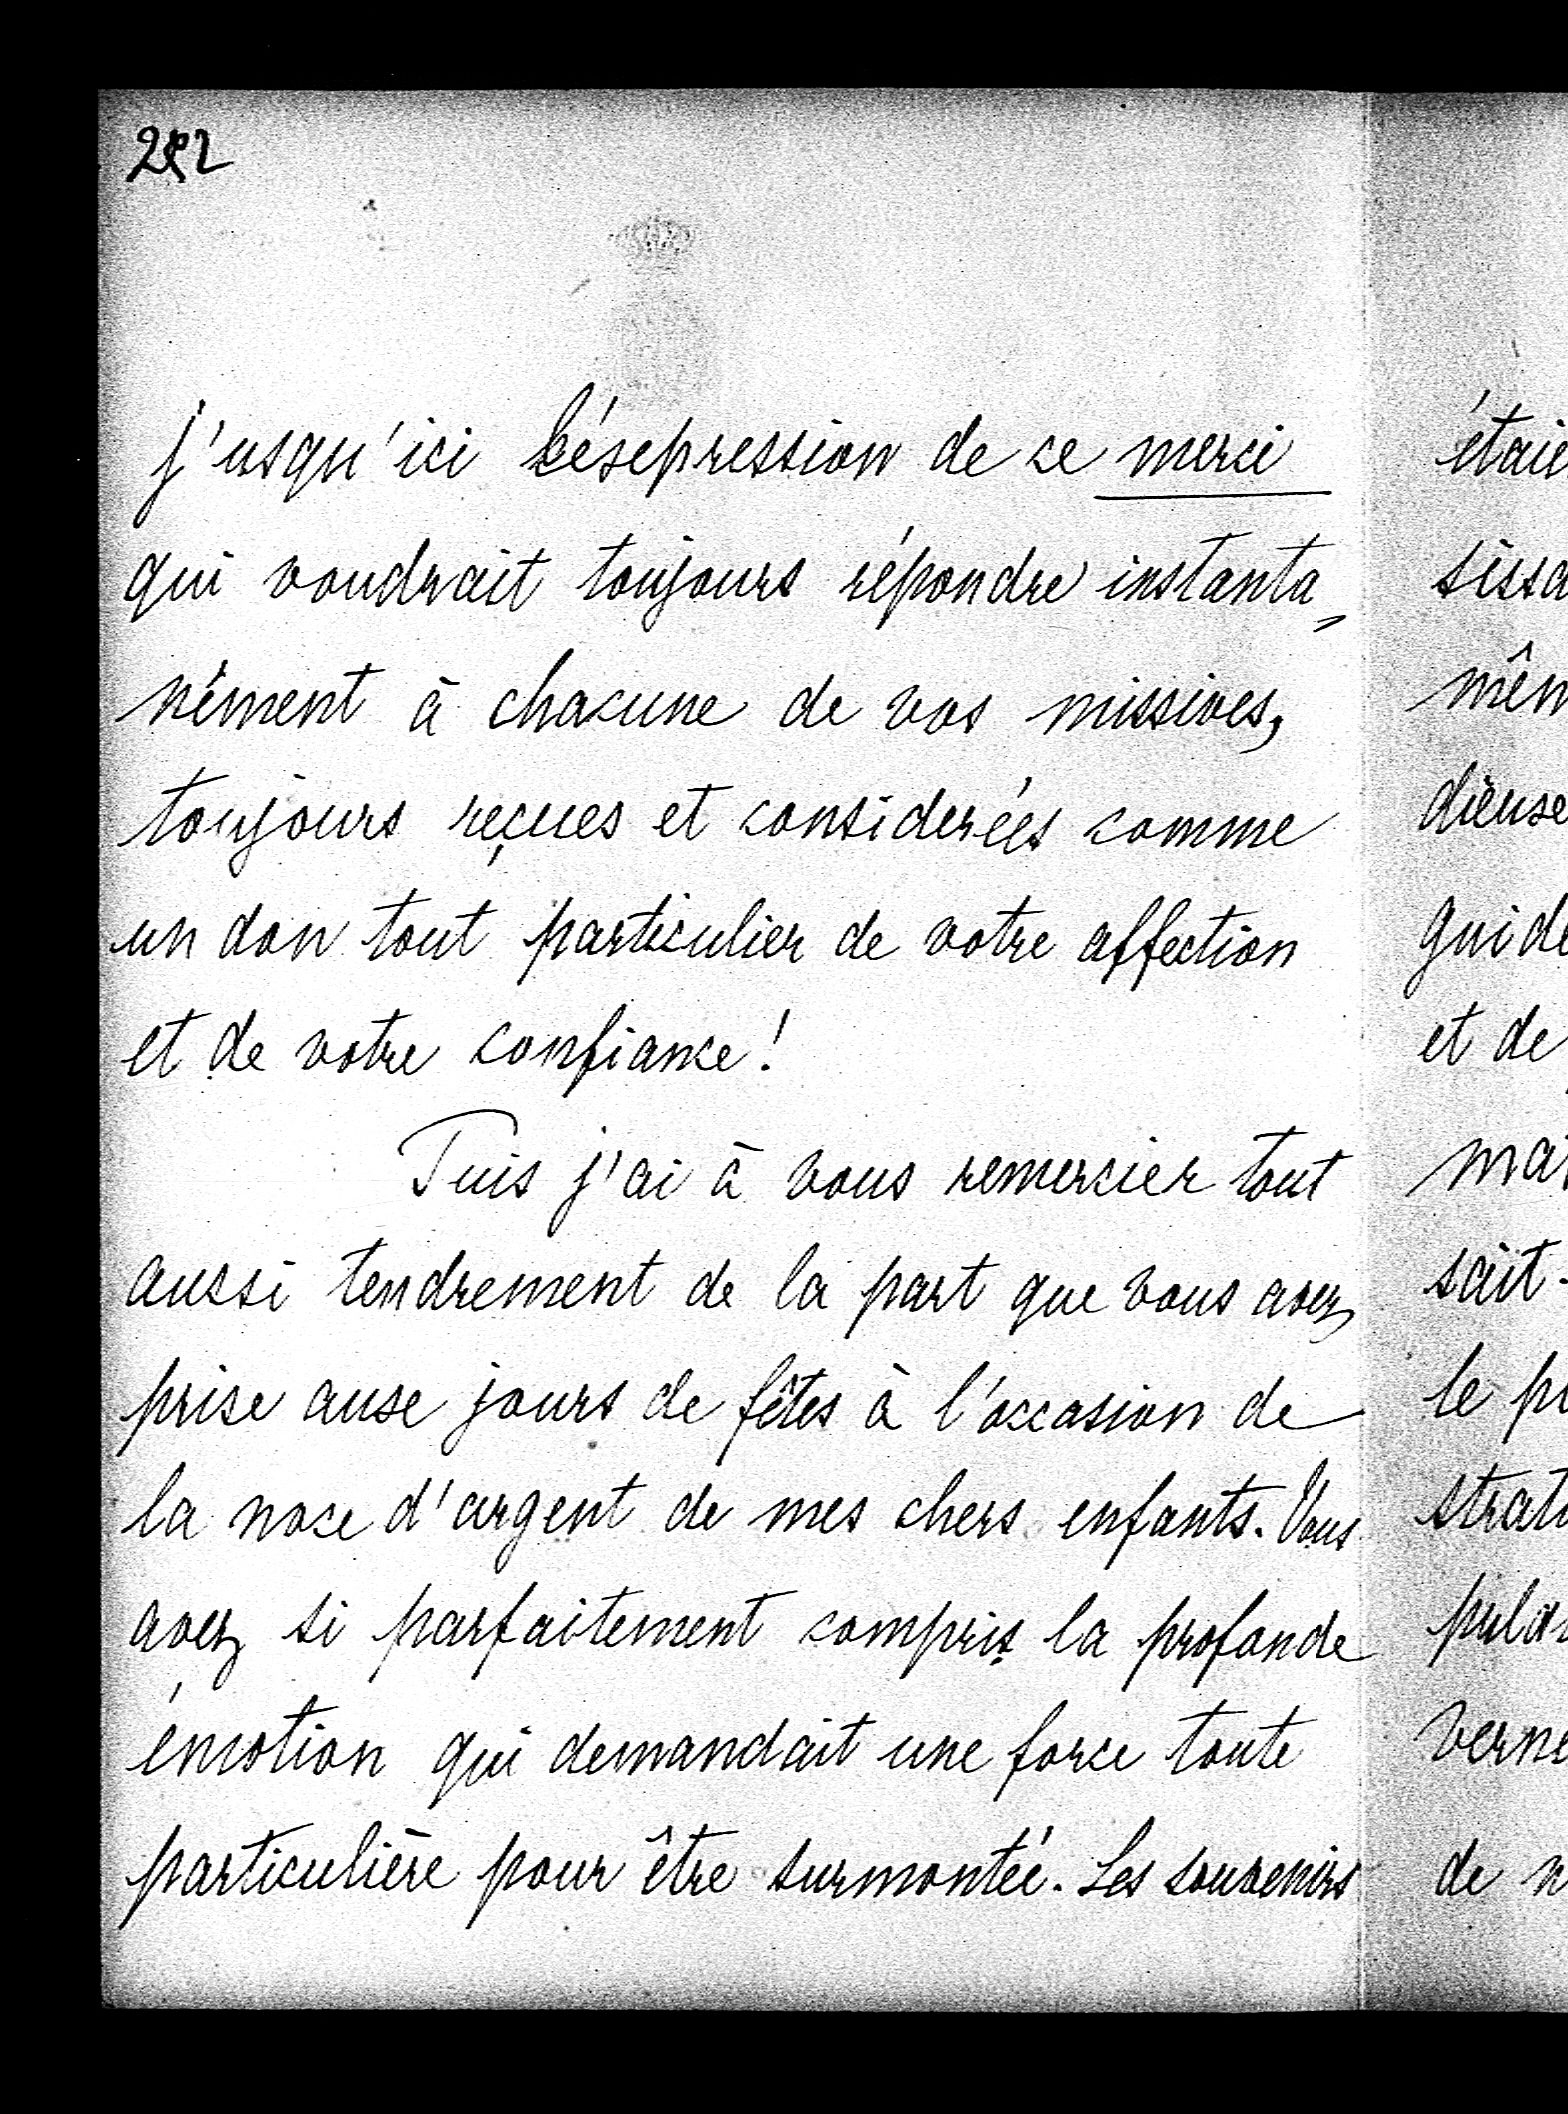 j'usqu'ici l'éxpression de ce merci
qui voudrait toujours répondre instanta=
nément à chacune de vos missives,
toujours reçues et considerées comme
un don tout particulier de votre affection
et de votre confiance!
Puis j'ai à vous remercier tout
aussi tendrement de la part que vous avez
prise aux jours de fêtes à l'occasion de
la noce d'argent de mes chers enfants. Vous
avez si parfaitement compris la profonde
émotion qui demandait une force toute
particulière pour être surmontée. Les souvenirs
étaie
sissa
mêm
dieuse
guide
et de
mar
sait-
le pr
strati
pula
verne
de n